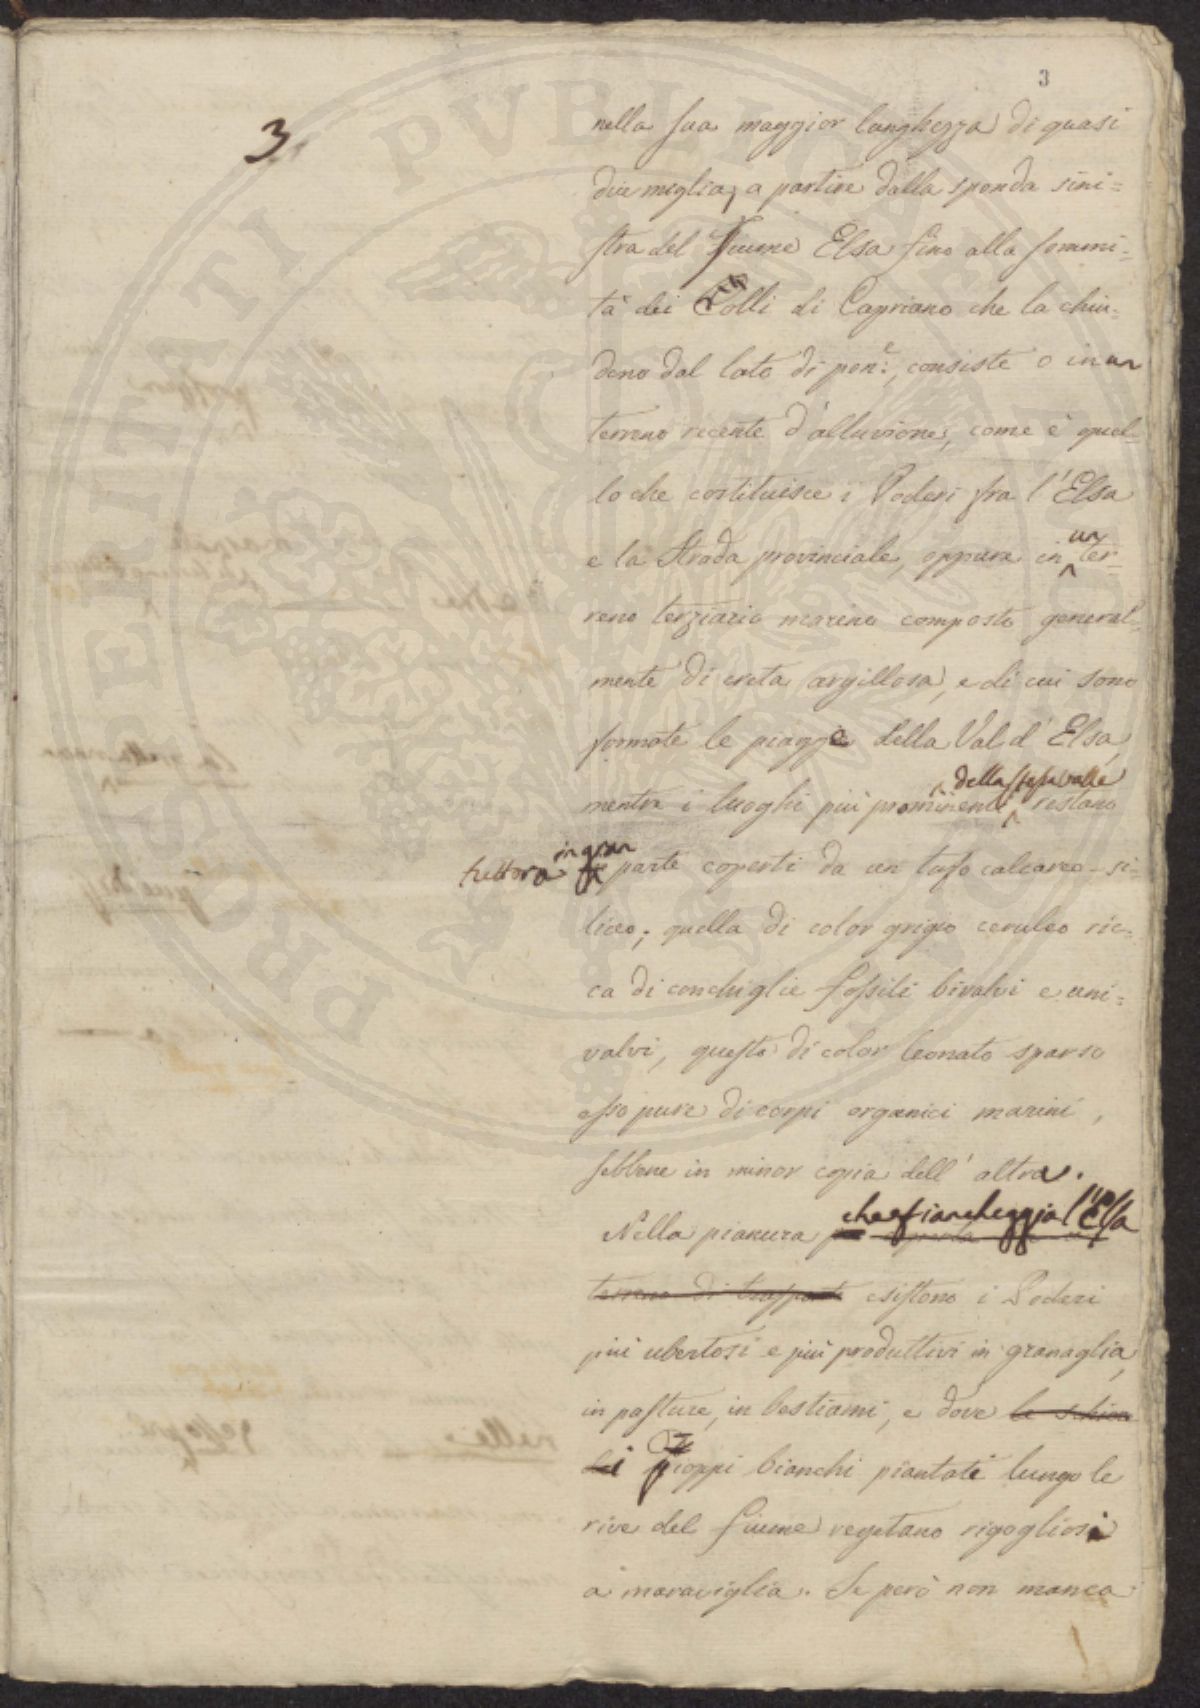 3
3.
nella sua maggior lunghezza di quasi
due miglia, a partire dalla sponda sini=
stra del fiume Elsa fino alla sommi=
tà dei Colli di Capriano che la chiu=
dono dal lato di pon.e, consiste o in un
terreno recente d'alluvione, come è quel=
lo che costituisce i Poderi fra l'Elsa
e la Strada provinciale, oppure in un ter=
reno terziario marino composto general=
mente di creta argillosa, e di cui sono
formate le piagge della Val d'Elsa,
mentre i luoghi più prominenti della stessa valle restano
tuttora in gran parte coperti da un tufo calcareo-si=
liceo; quella di color grigio ceruleo ric=
ca di conchiglie fossili bivalvi e uni=
valvi, questo di color leonato sparso
esso pure di corpi organici marini,
sebbene in minor copia dell'altra.
Nella pianura che fiancheggia l'Elsa
terreno di trasporto esistono i Poderi
più ubertosi e più produttivi in granaglia,
in pasture, in bestiami, e dove le schiere
dei i pioppi bianchi piantati lungo le
rive del fiume vegetano rigogliosi
a maraviglia. Se però non manca
PROSPERITATI PUBLICAE